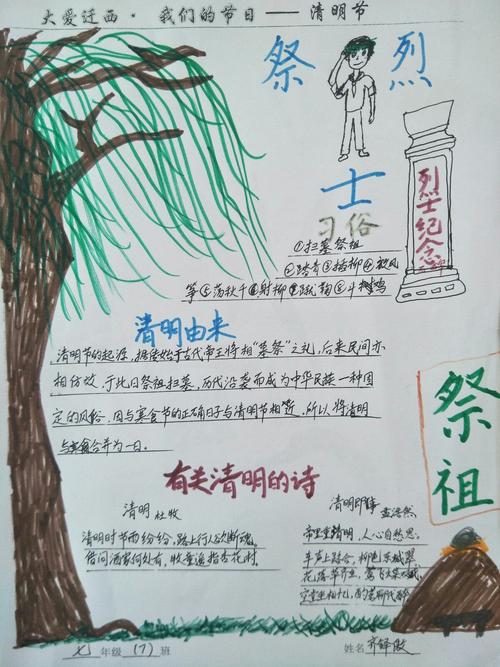 大爱迁西·我们的节日——清明节
祭 烈
士
烈士纪念碑
习俗
①扫墓祭祖
②踏青③插柳④放风
等⑤荡秋千⑥射柳⑦蹴鞠⑧斗鸡
清明由来
清明节的起源,据传始于古代帝王将相“墓祭”之礼,后来民间亦
相仿效,于此日祭祖扫墓,历代沿袭而成为中华民族一种固
定的风俗,因与寒食节的正确日子与清明节相近,所以将清明
与寒食合并为一日。
祭祖
有关清明的诗
清明 杜牧
清明时节雨纷纷,路上行人欲断魂。
借问酒家何处有,牧童遥指杏花村。
清明即事 孟浩然
帝里重清明,人心自愁思。
车声上路合,柳色东城翠。
花落草齐生,莺飞蝶双戏。
空堂坐相忆,酌茗聊代醉
七 年级 (7) 班
姓名